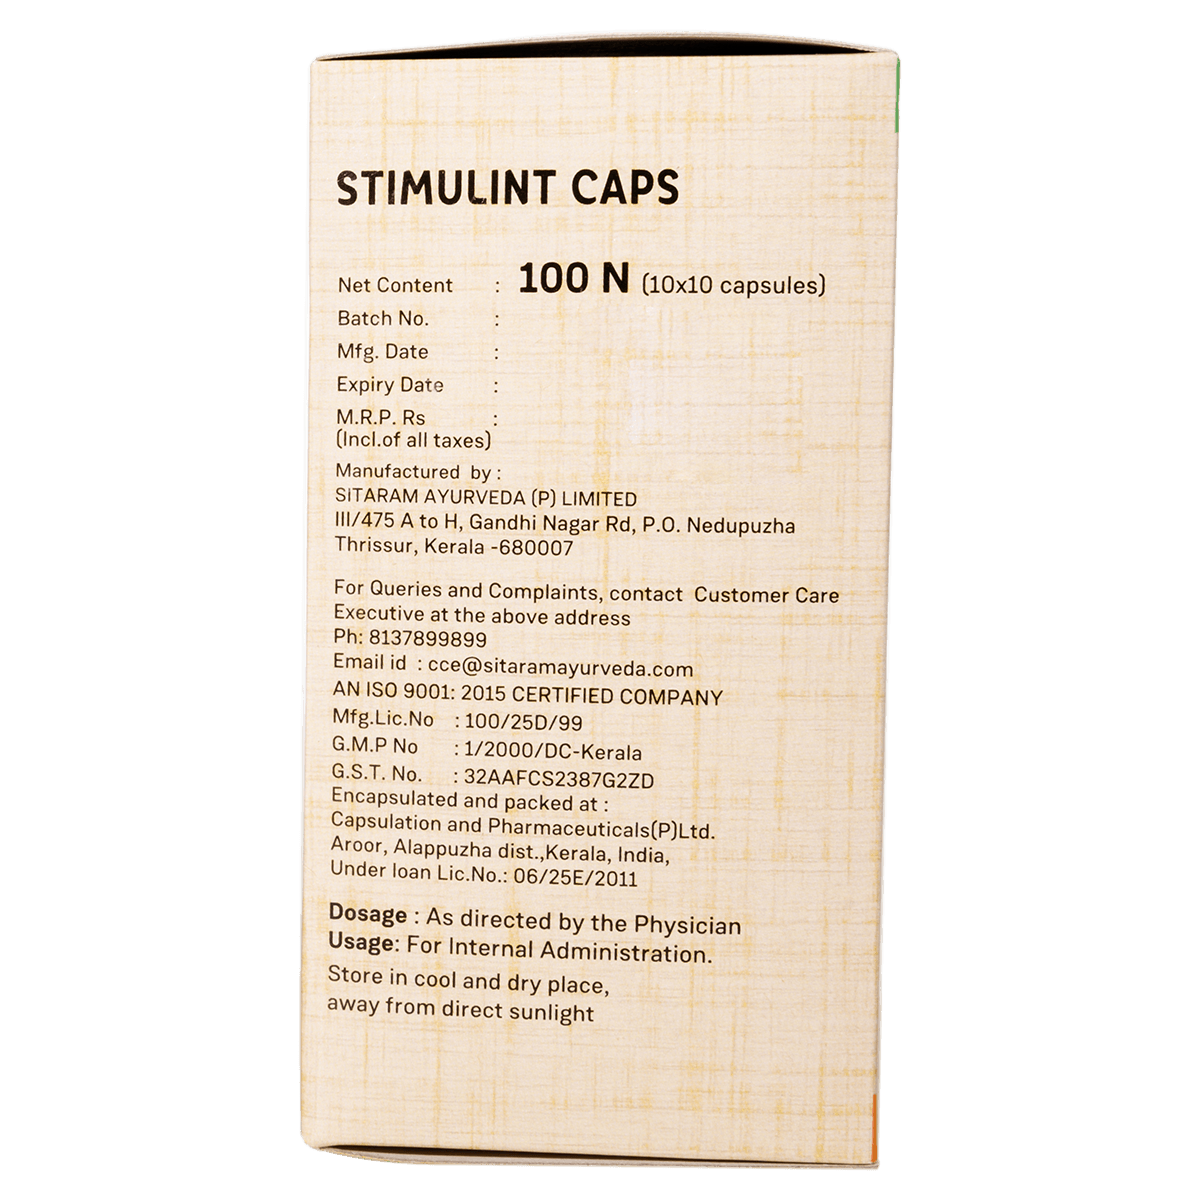 STIMULINT CAPS
Net Content : 100 N (10x10 capsules)
Batch No. :
Mfg. Date :
Expiry Date :
M.R.P. Rs :
(Incl.of all taxes)
Manufactured by :
SITARAM AYURVEDA (P) LIMITED
III/475 A to H, Gandhi Nagar Rd, P.O. Nedupuzha
Thrissur, Kerala -680007
For Queries and Complaints, contact Customer Care
Executive at the above address
Ph: 8137899899
Email id : cce@sitaramayurveda.com
AN ISO 9001: 2015 CERTIFIED COMPANY
Mfg.Lic.No : 100/25D/99
G.M.P No : 1/2000/DC-Kerala
G.S.T. No. : 32AAFCS2387G2ZD
Encapsulated and packed at :
Capsulation and Pharmaceuticals(P)Ltd.
Aroor, Alappuzha dist.,Kerala, India,
Under loan Lic.No.: 06/25E/2011
Dosage : As directed by the Physician
Usage: For Internal Administration.
Store in cool and dry place,
away from direct sunlight